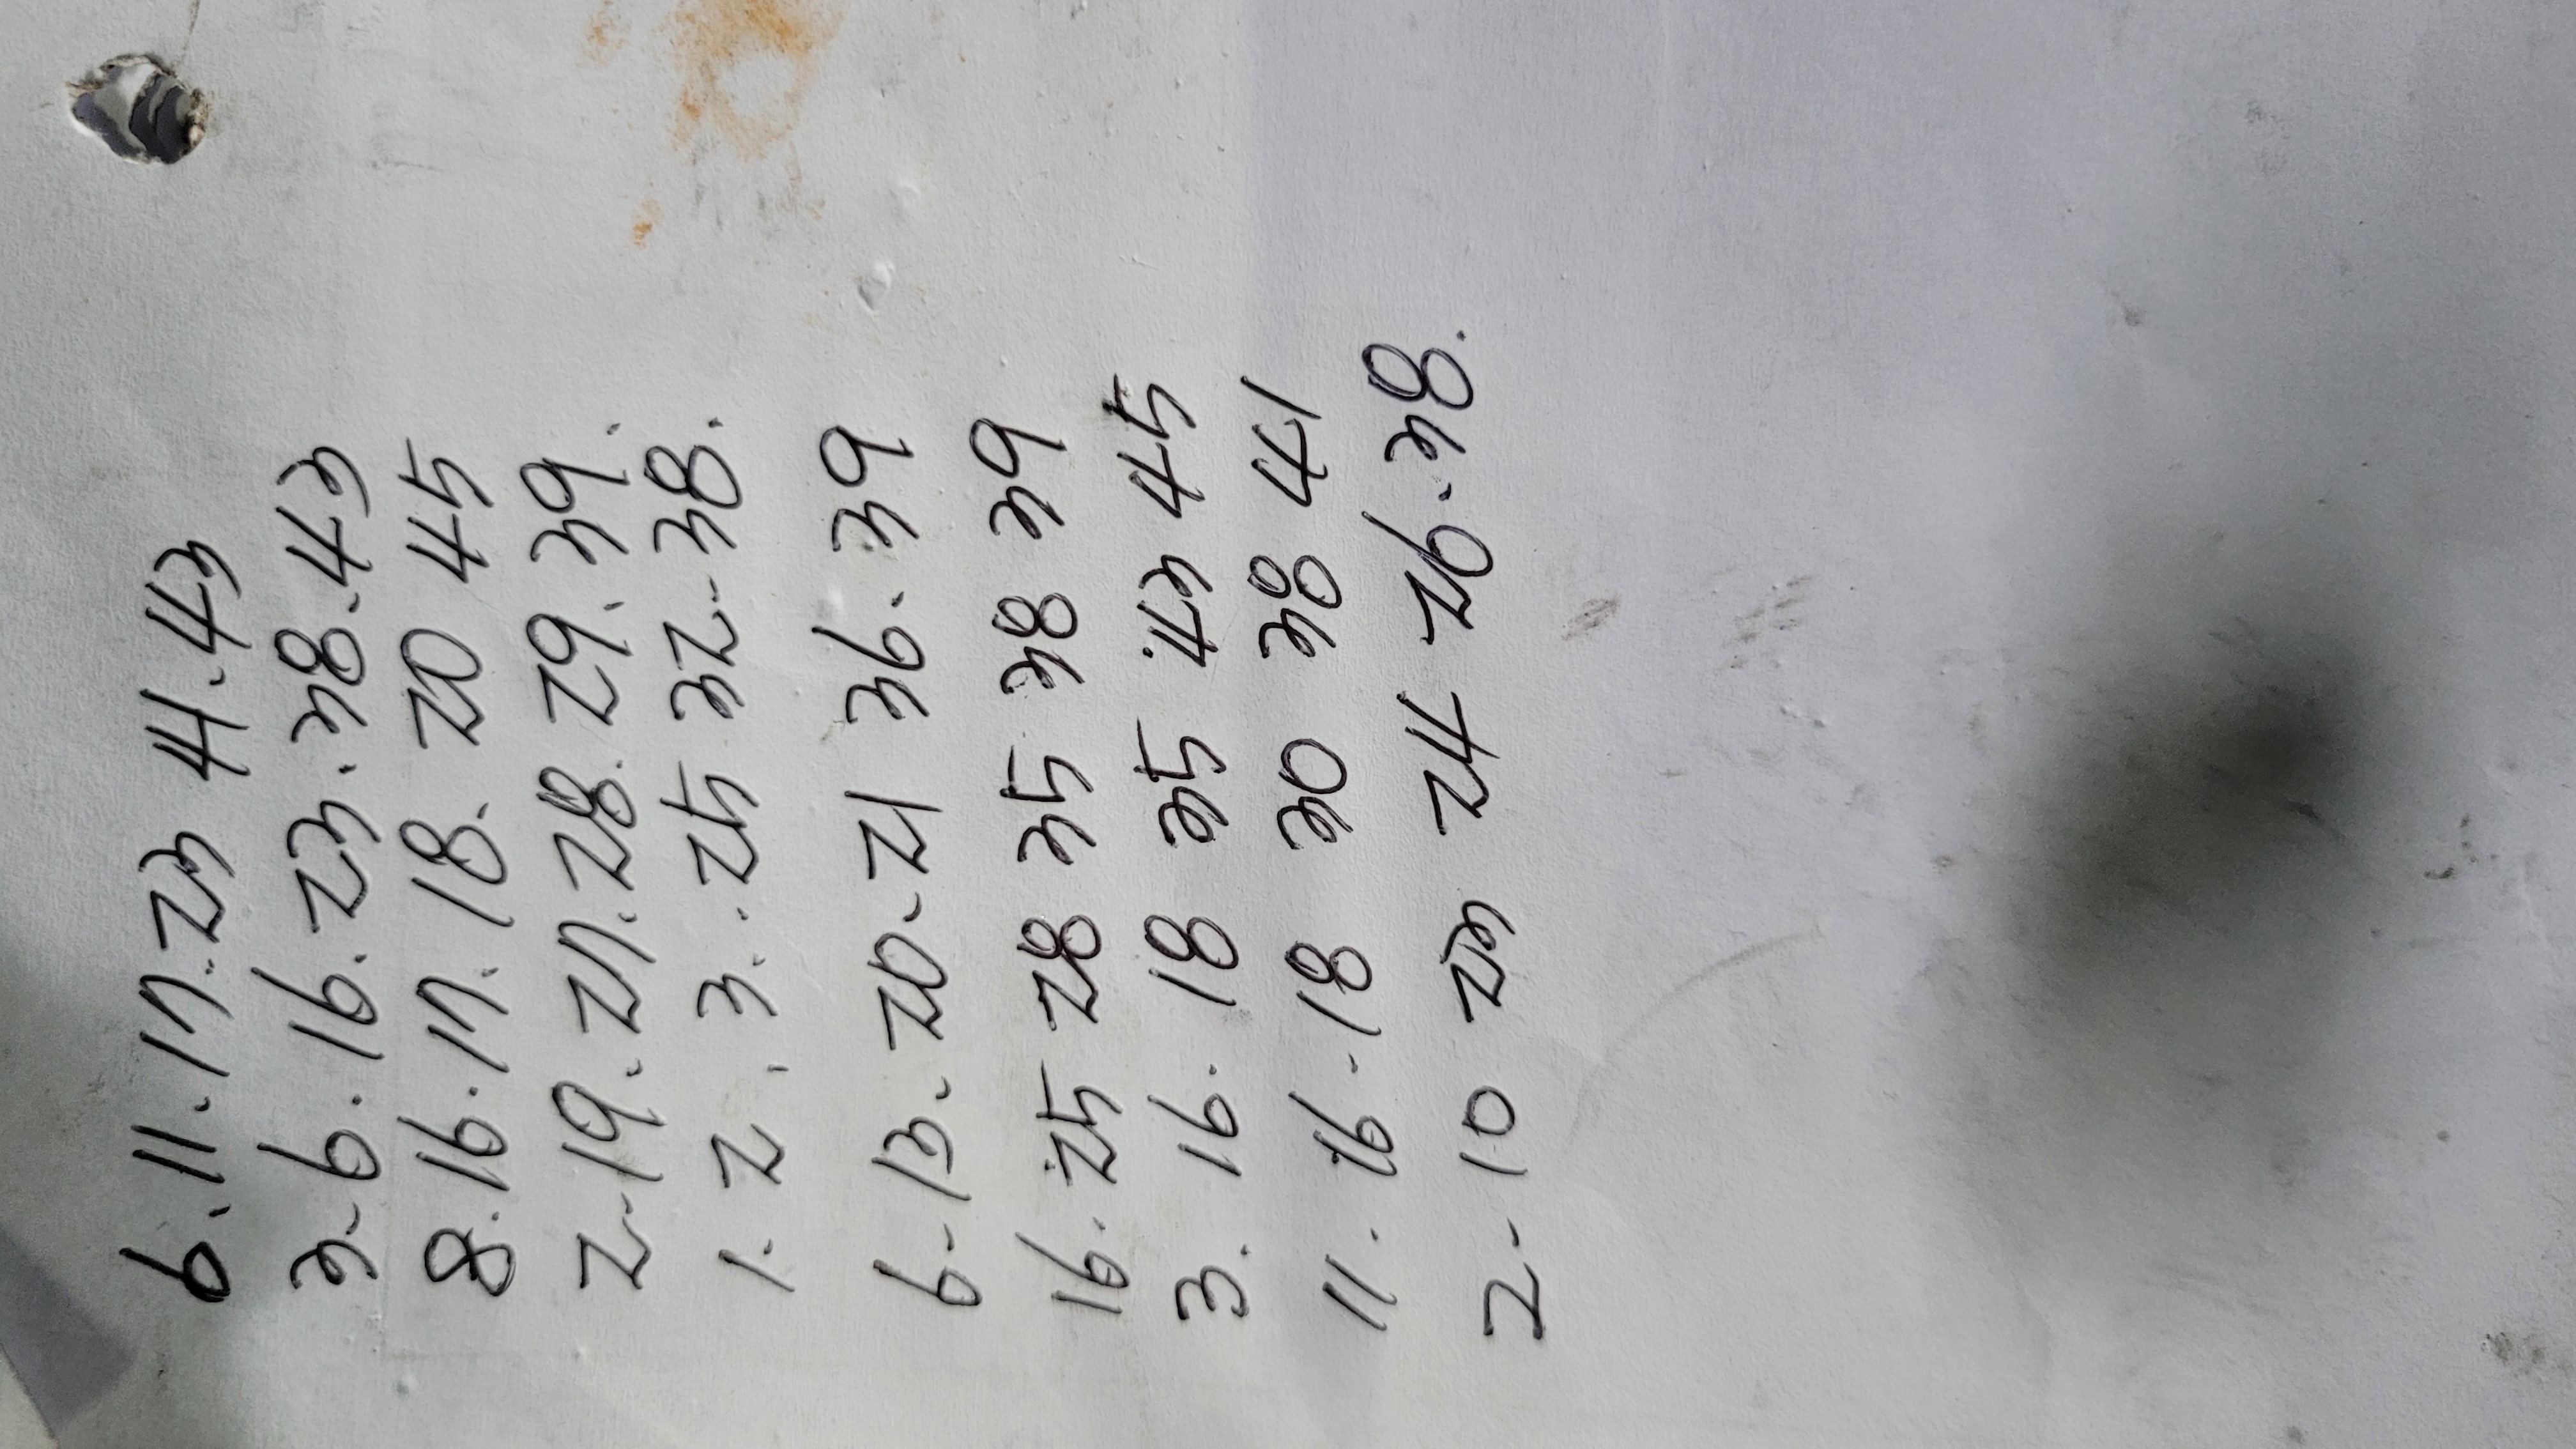 6.11.17.23 41.43
3-6.16.23.38.43
8.16.17.18.20 45
2-19.27.28.29.39.
1.2.3..25 32-38.
6-13.20-21 36.39
16.25 28 35 38 39
3.16.18 35 43.45
11.16.18 30 38 41
2-10 23 24 26.38.